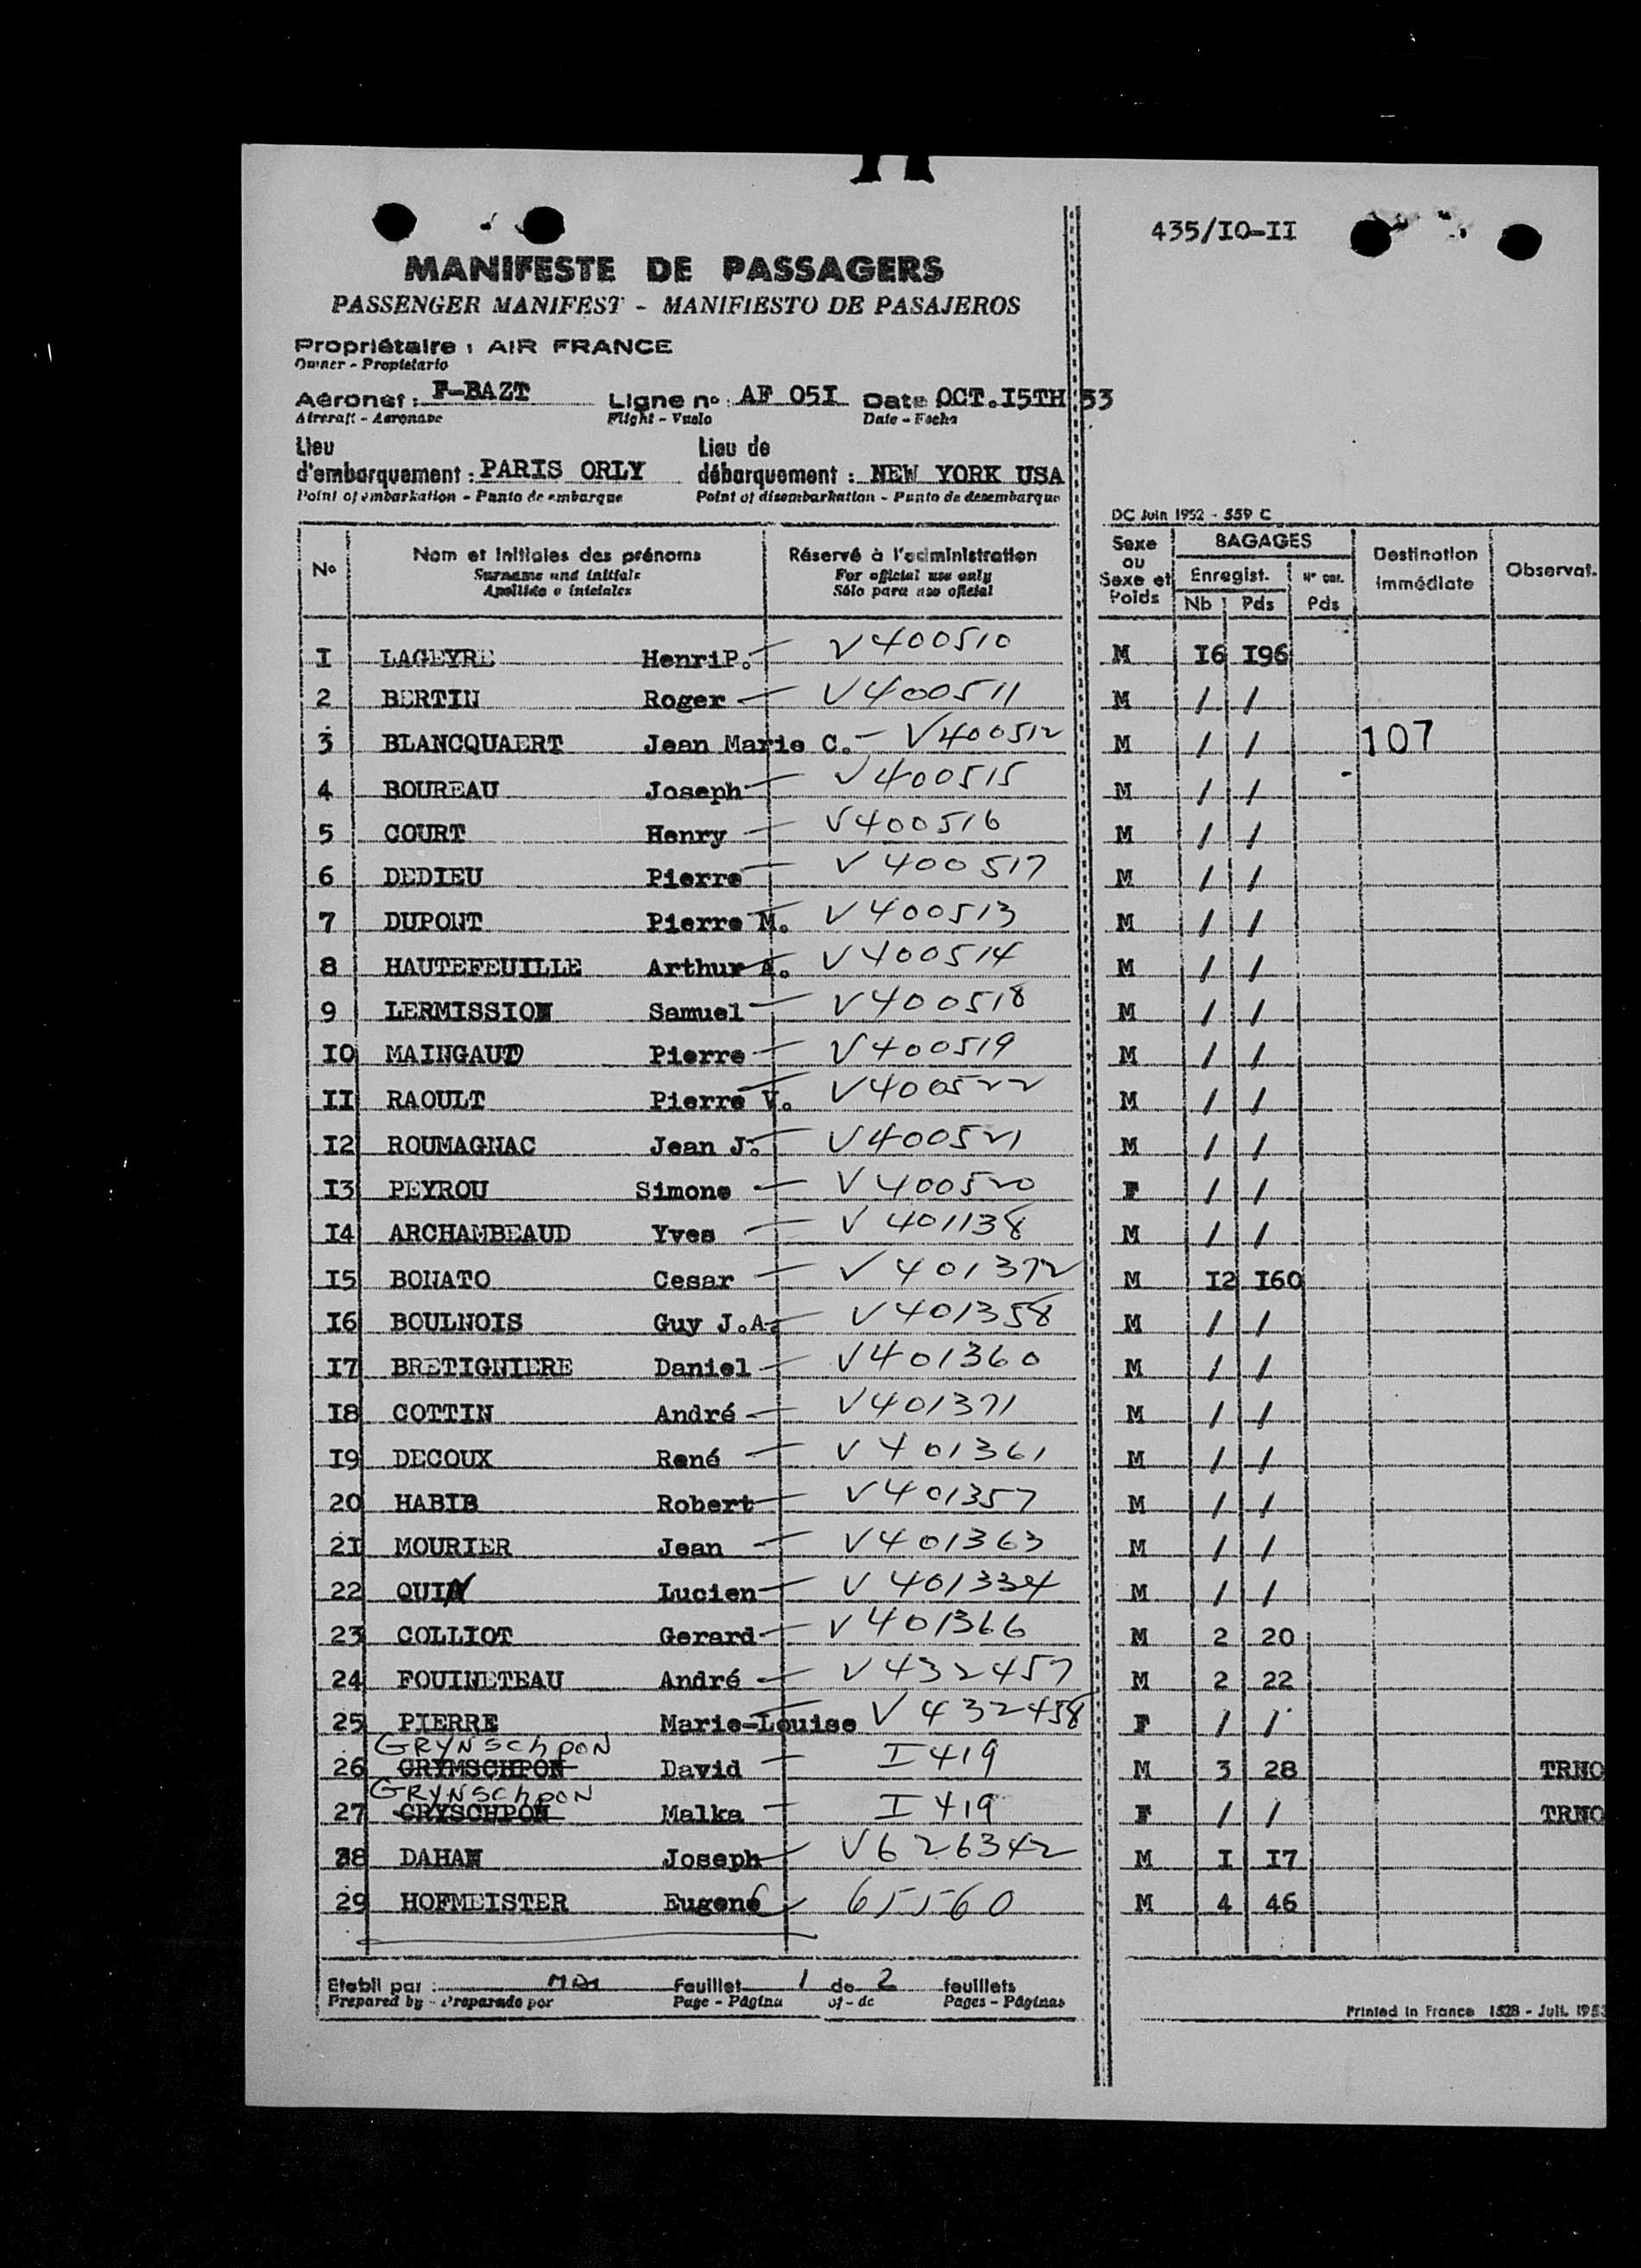 435/IO-II
MANIFESTE DE PASSAGERS
PASSENGER MANIFEST - MANIFIESTO DE PASAJEROS
Propriétaire : AIR FRANCE
Owner - Propietario
Aéronef : F-BAZT Ligne n° : AF 05I Date OCT.I5TH 53
Aircraft - Aeronave Flight - Vuelo Date - Fecha
Lieu d'embarquement : PARIS ORLY Lieu de débarquement : NEW YORK USA
Point of embarkation - Punto de embarque Point of disembarkation - Punto de desembarque
DC Juin 1952 - 559 C
N° Nom et initiales des prénoms Réservé à l'administration Sexe ou Sexe et Poids BAGAGES Destination immédiate Observat.
Surname and initials For official use only Enregist.
Apellido e iniciales Sólo para uso oficial Nb Pds Pds
I LAGEYRE HenriP. V400510 M I6 I96
2 BERTIN Roger V400511 M / /
3 BLANCQUAERT Jean Marie C. V400512 M / / 107
4 BOUREAU Joseph V400515 M / /
5 COURT Henry V400516 M / /
6 DEDIEU Pierre V400517 M / /
7 DUPONT Pierre M. V400513 M / /
8 HAUTEFEUILLE Arthur A. V400514 M / /
9 LERMISSION Samuel V400518 M / /
IO MAINGAUD Pierre V400519 M / /
II RAOULT Pierre V. V400522 M / /
I2 ROUMAGNAC Jean J. V400521 M / /
I3 PEYROU Simone V400520 F / /
I4 ARCHAMBEAUD Yves V401138 M / /
I5 BONATO Cesar V401372 M I2 I60
I6 BOULNOIS Guy J.A. V401358 M / /
I7 BRETIGNIERE Daniel V401360 M / /
I8 COTTIN André V401371 M / /
I9 DECOUX René V401361 M / /
20 HABIB Robert V401357 M / /
2I MOURIER Jean V401363 M / /
22 QUIN Lucien V401334 M / /
23 COLLIOT Gerard V401366 M 2 20
24 FOUINETEAU André V432457 M 2 22
25 PIERRE Marie-Louise V432458 F / /
GRYNSchpON
26 GRYMSCHPON David I419 M 3 28 TRNO
GRYNSchpON
27 GRYSCHPON Malka I419 F / / TRNO
28 DAHAN Joseph V626342 M I I7
29 HOFMEISTER Eugene 65560 M 4 46
Etabli par : Feuillet 1 de 2 feuillets
Prepared by - Preparado por Page - Página of - de Pages - Páginas
Printed in France 1528 - Juil. 1953